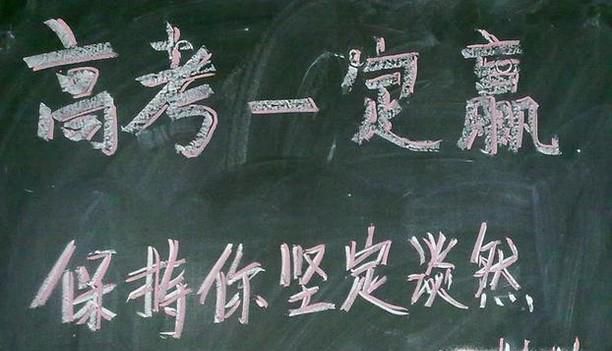 高考一定赢
保持你坚定淡然